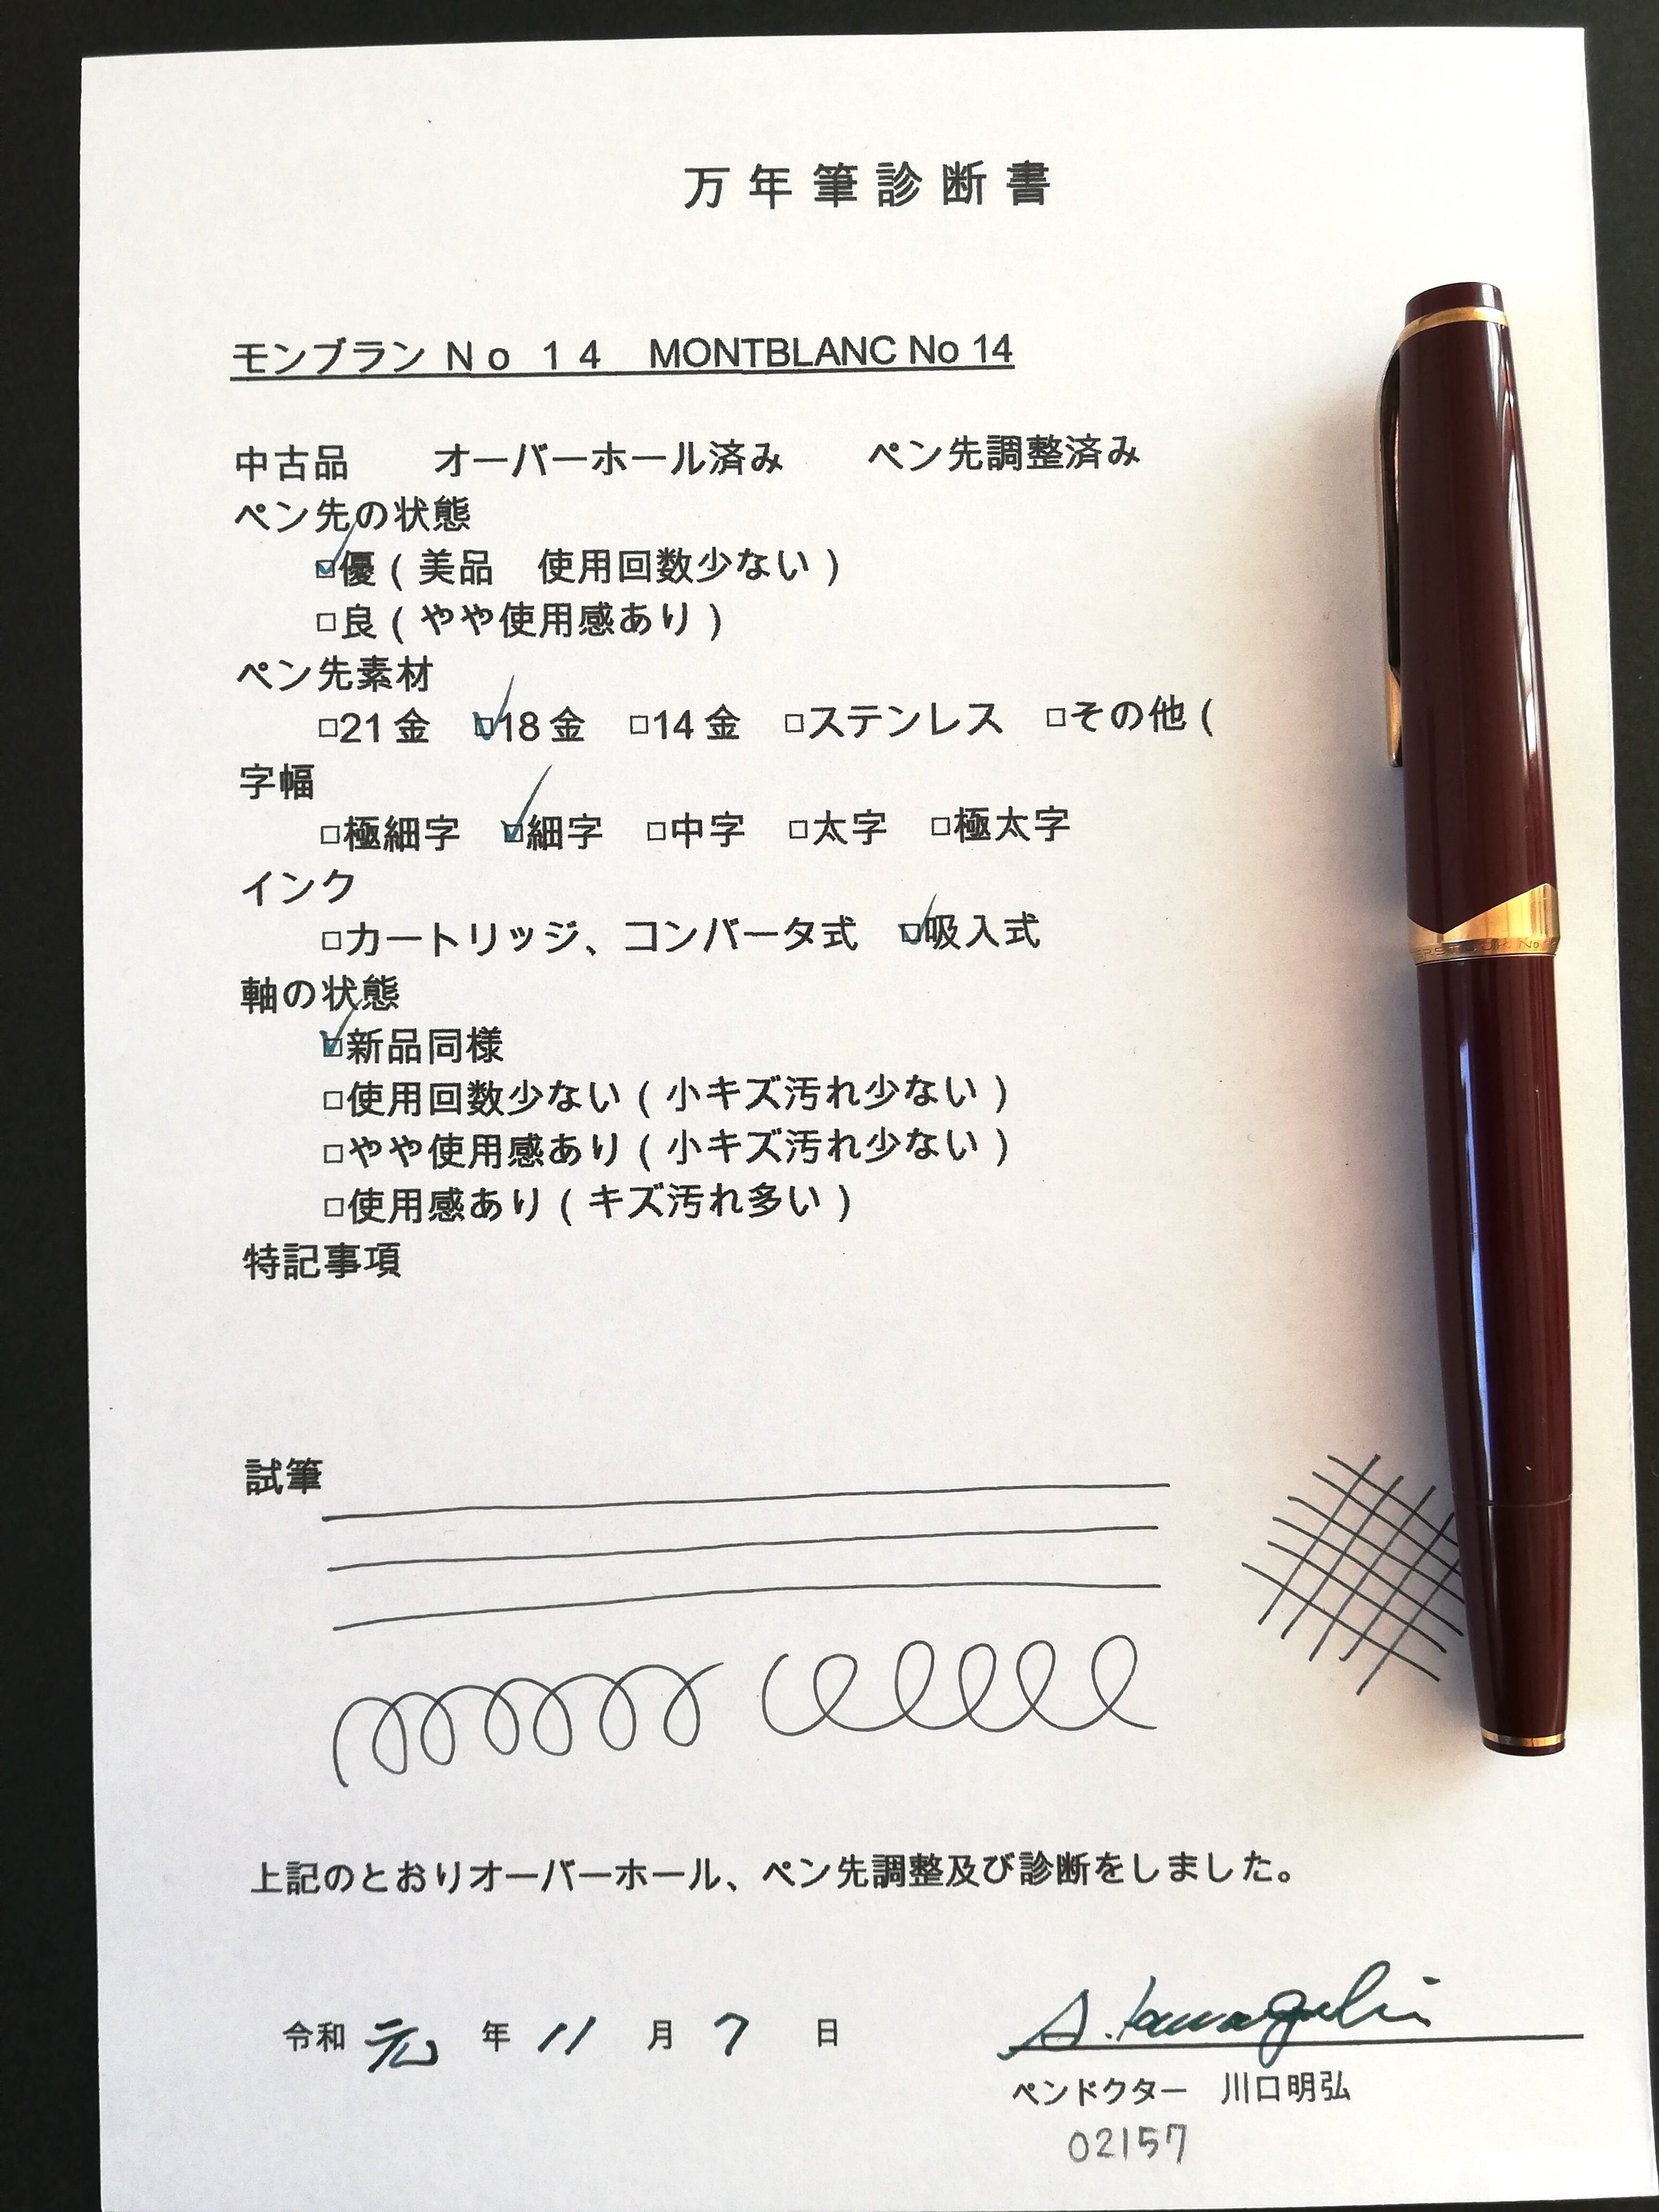 万年筆診断書
モンブラン Ｎｏ １４　MONTBLANC No 14
中古品　　オーバーホール済み　　ペン先調整済み
ペン先の状態
☑優（美品　使用回数少ない）
□良（やや使用感あり）
ペン先素材
□21金　☑18金　□14金　□ステンレス　□その他（
字幅
□極細字　☑細字　□中字　□太字　□極太字
インク
□カートリッジ、コンバータ式　☑吸入式
軸の状態
☑新品同様
□使用回数少ない（小キズ汚れ少ない）
□やや使用感あり（小キズ汚れ少ない）
□使用感あり（キズ汚れ多い）
特記事項
試筆
上記のとおりオーバーホール、ペン先調整及び診断をしました。
令和 元 年 11 月 7 日
A. Kawaguchi
ペンドクター　川口明弘
02157